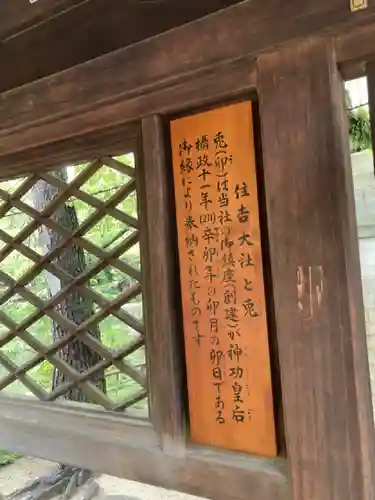 住吉大社と兎
兎(卯)は当社の御鎮座(創建)が神功皇后
摂政十一年(211)辛卯年の卯月の卯日である
御縁により奉納されたものです